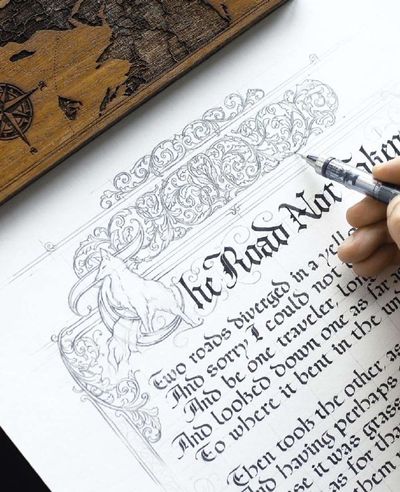 The Road Not Taken
Two roads diverged in a yell
And sorry I could not
And be one traveler, lon
And looked down one as far as
To where it bent in the un
Then took the other, as
And having perhaps
se it was grass
as for tha